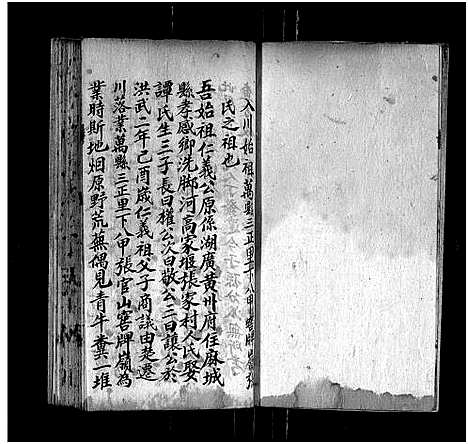 入川始祖萬縣三正里下八甲
民之祖也
吾始祖仁義公原係湖廣黃州府住麻城
縣孝感鄉洗脚河高家堰張家村人氏娶
譚氏生三子長曰權公次曰敬公三曰讓公於
洪武二年己酉歲仁義祖父子商議由楚遷
川落業萬縣三正里下八甲張官山窖牌嶺為
業時斯地烟原野荒蕪偶見青牛糞一堆